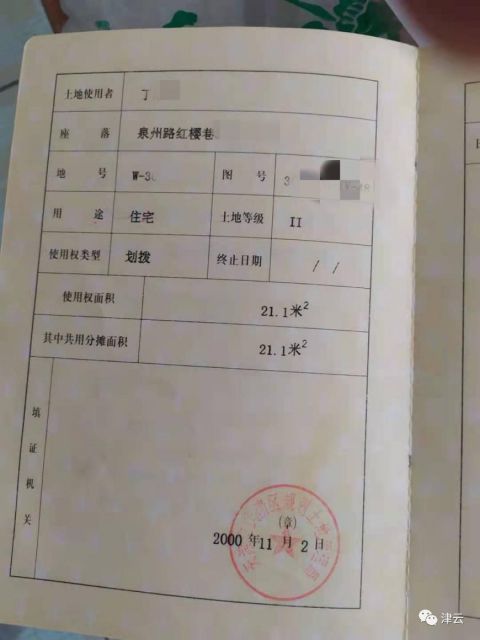 土地使用者 丁
座落 泉州路红樱巷
地号 W-3 图号 3
用途 住宅 土地等级 II
使用权类型 划拨 终止日期 / /
使用权面积 21.1米²
其中共用分摊面积 21.1米²
填证机关
(章)
2000年11月2日
津云